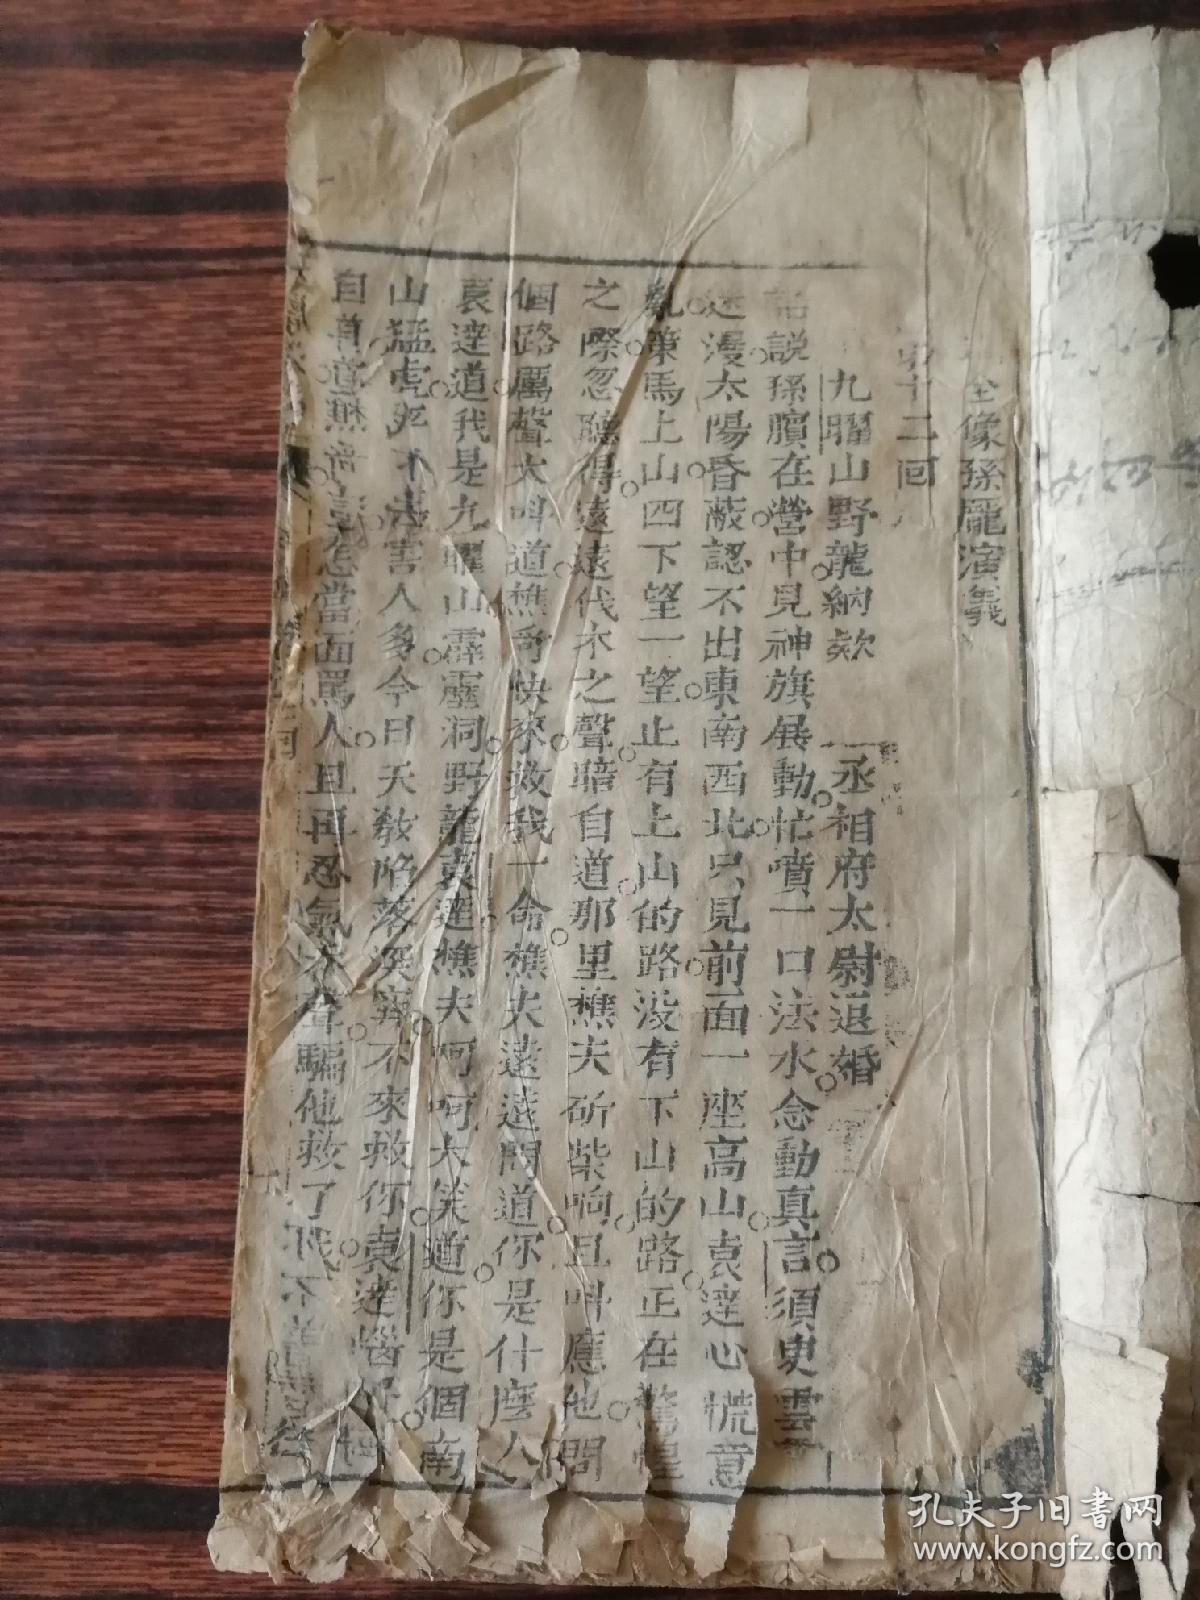 全像孫龐演義
第十二回
九曜山野龍納欵 丞相府太尉退婚
話說孫臏在營中見神旗展動忙噴一口法水念動真言須臾雲
迷漫太陽昏蔽認不出東南西北只見前面一座高山袁達心慌意
亂策馬上山四下望一望止有上山的路没有下山的路正在驚惶
之際忽聽得遠遠伐木之聲暗自道那里樵夫斫柴响且呌應他問
個路厲聲大呌道樵哥快來救我一命樵夫遠遠問道你是什麽人
袁達道我是九曜山霹靂洞野龍袁達樵夫呵呵大笑道你是個南
山猛虎害人多今日天敎陷落深穽不來救你袁達惱
自道樵哥當面罵人且再忍氣聲騙他救了我不
孔夫子旧书网
www.kongfz.com